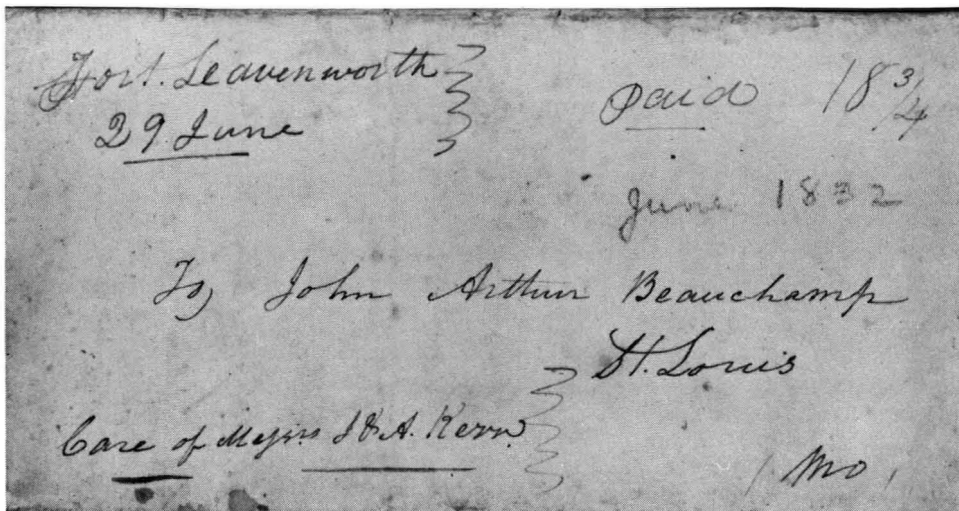 Fort. Leavenworth
29 June
Paid 18 3/4
June 1832
To John Arthur Beauchamp
St. Louis
Care of Messrs J & A. Kerr
Mo